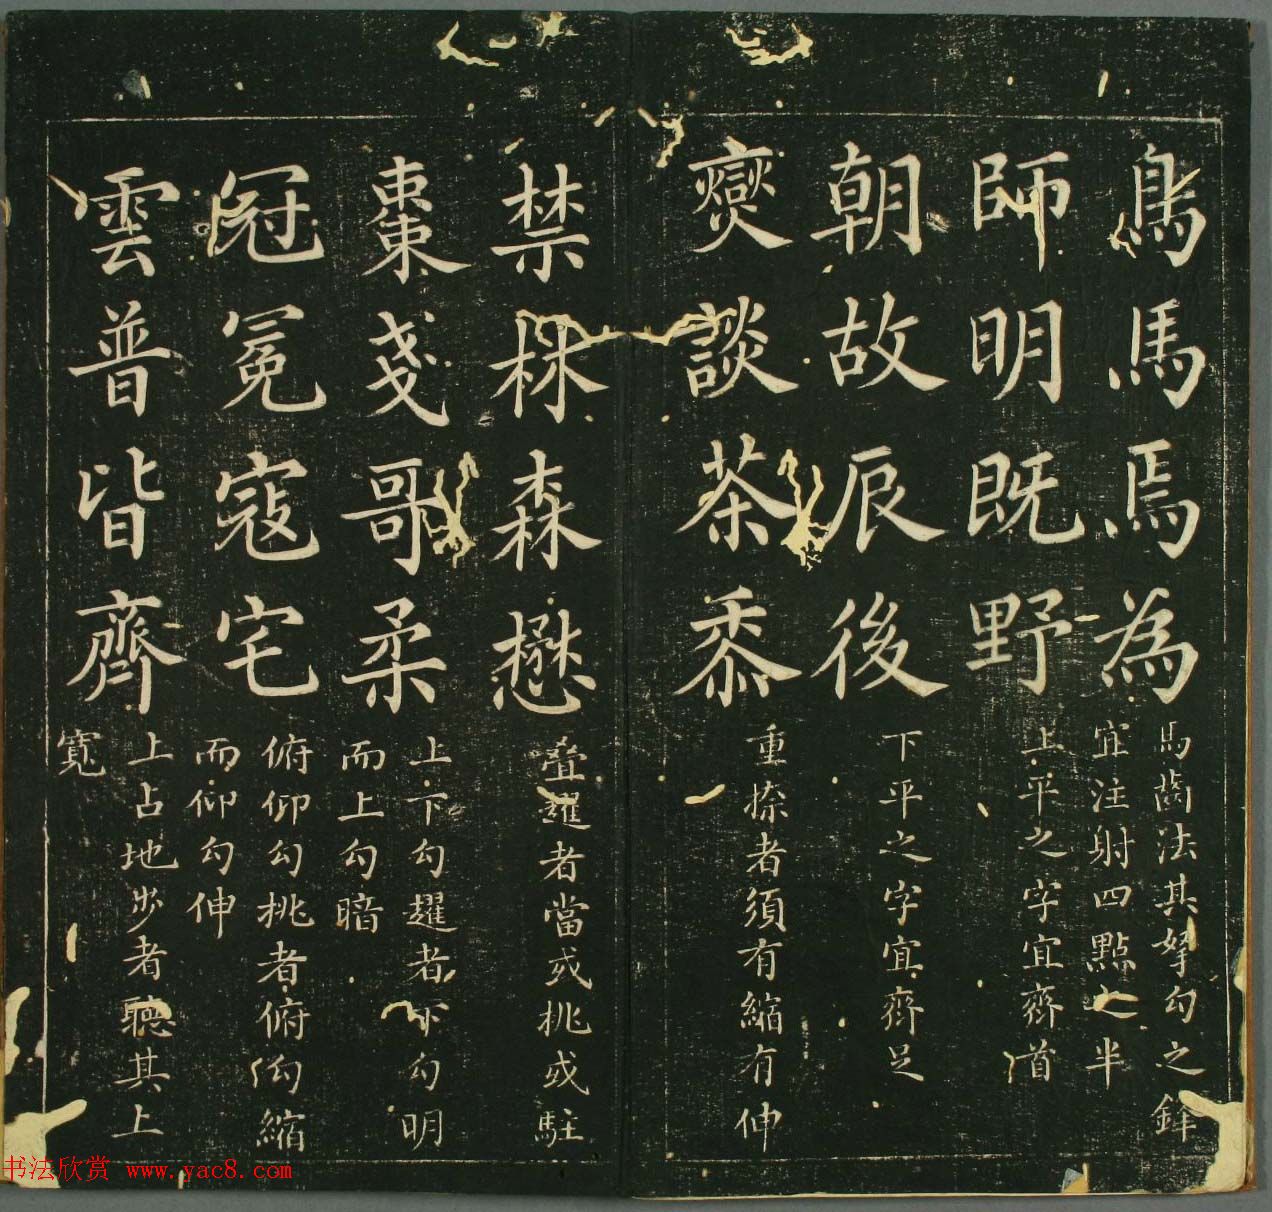 鳥馬焉為
馬齒法其挐勾之鋒
宜注射四點之半
師明既野
上平之字宜齊首
朝故辰後
下平之字宜齊足
爕談茶黍
重捺者須有縮有伸
禁林森懋
疊趯者當或挑或駐
棗戔哥柔
上下勾趯者下勾明
而上勾暗
冠冕寇宅
俯仰勾挑者俯勾縮
而仰勾伸
雲普皆齊
上占地步者聽其上
寬
书法欣赏 www.yac8.com